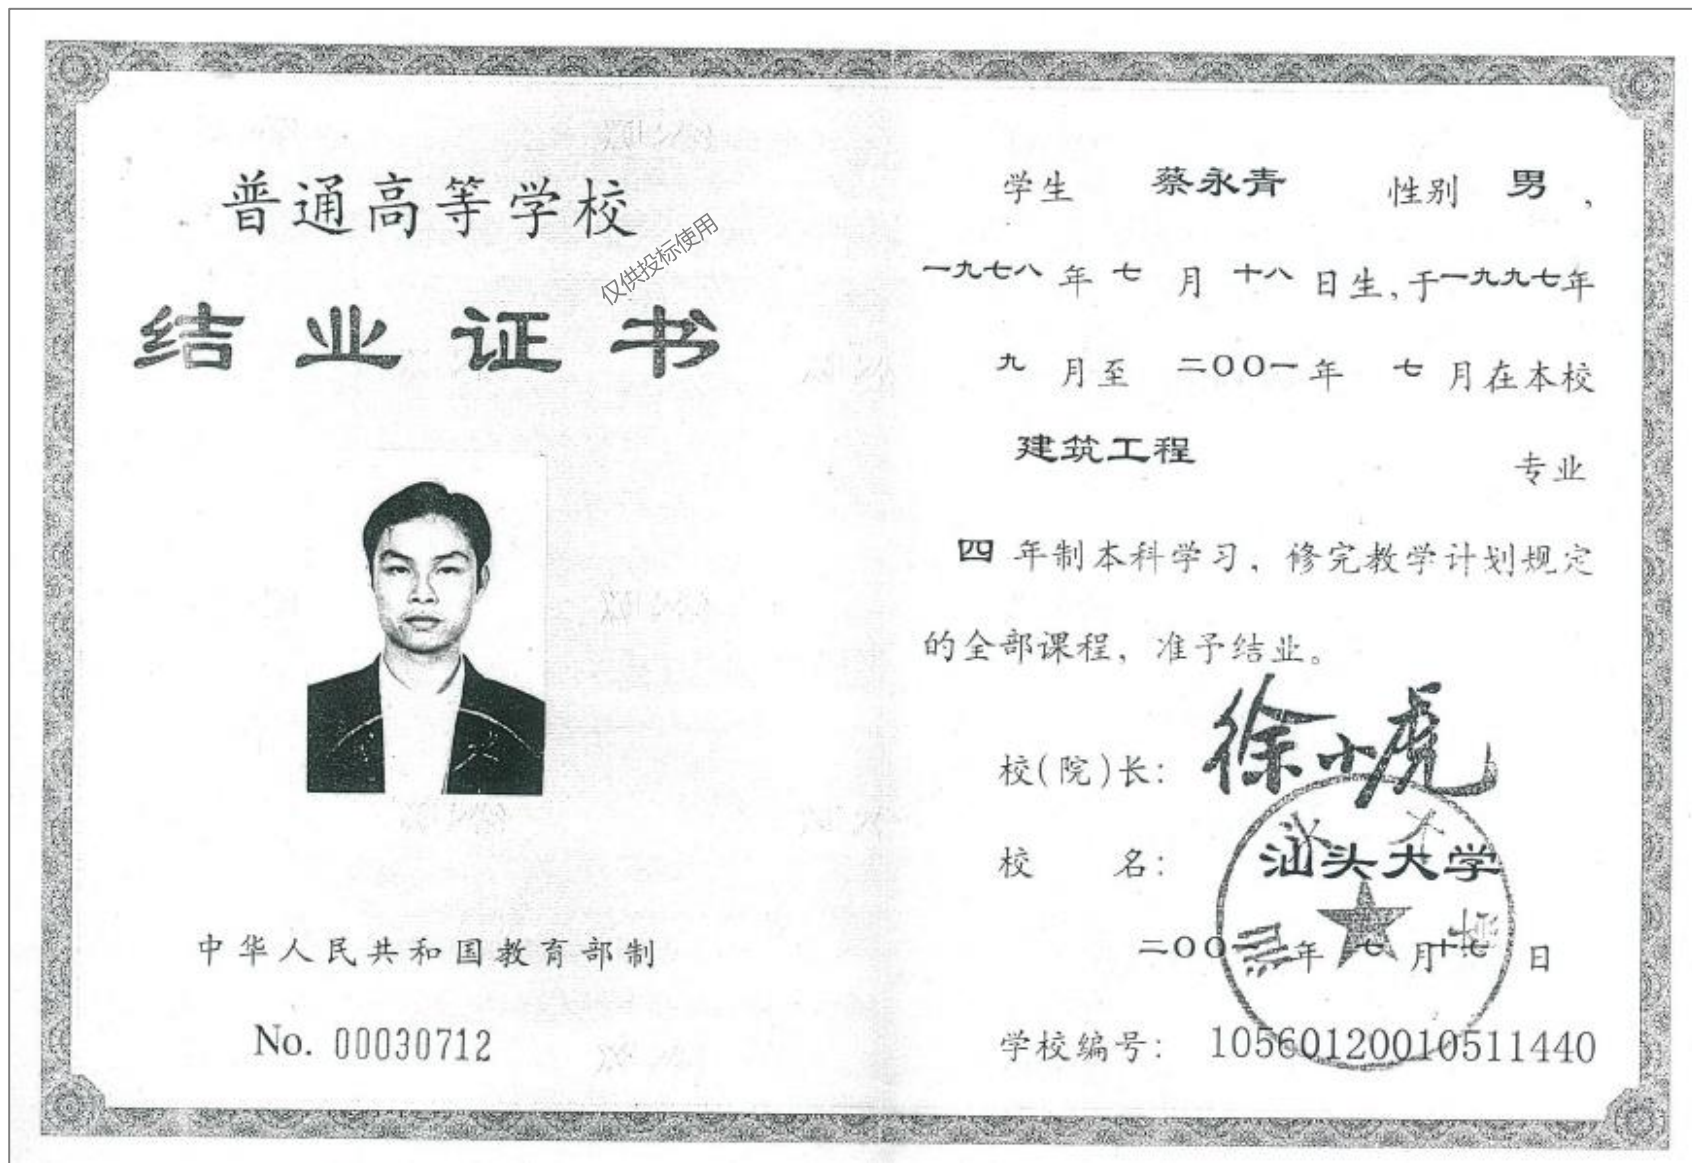 普通高等学校
结业证书
仅供投标使用
中华人民共和国教育部制
No. 00030712
学生 蔡永青 性别 男，
一九七八年七月十八日生，于一九九七年
九月至二〇〇一年七月在本校
建筑工程 专业
四年制本科学习，修完教学计划规定
的全部课程，准予结业。
校(院)长：徐小虎
校 名：汕头大学
二〇〇 年七月十七日
学校编号：10560120010511440